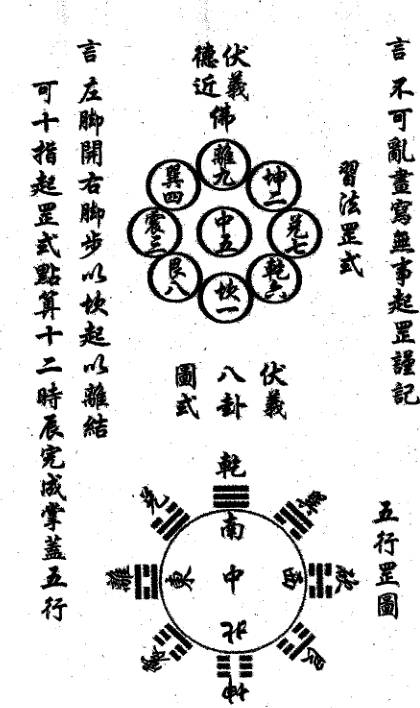 言不可亂畫寫無事起罡謹記
習法罡式
伏義
德近
佛
離九
坤二
兌七
乾六
坎一
艮八
震三
巽四
中五
五行罡圖
伏義
八卦
圖式
乾
巽
坎
艮
坤
震
離
兌
南
西
北
東
中
言左脚開右脚步以坎起以離結
可十指起罡式點算十二時辰完成掌蓋五行